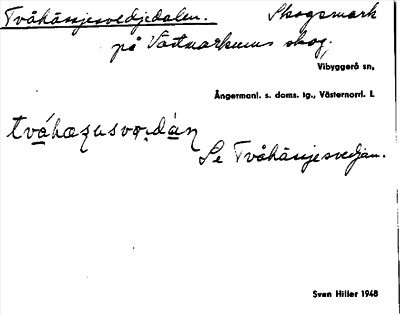 Tvåhässjesvedjedalen. Skogsmark
på Västmarkums skog.
Vibyggerå sn,
Ångermanl. s. doms. tg., Västernorrl. l.
Se Tvåhässjesvedjan.
Sven Hiller 1948